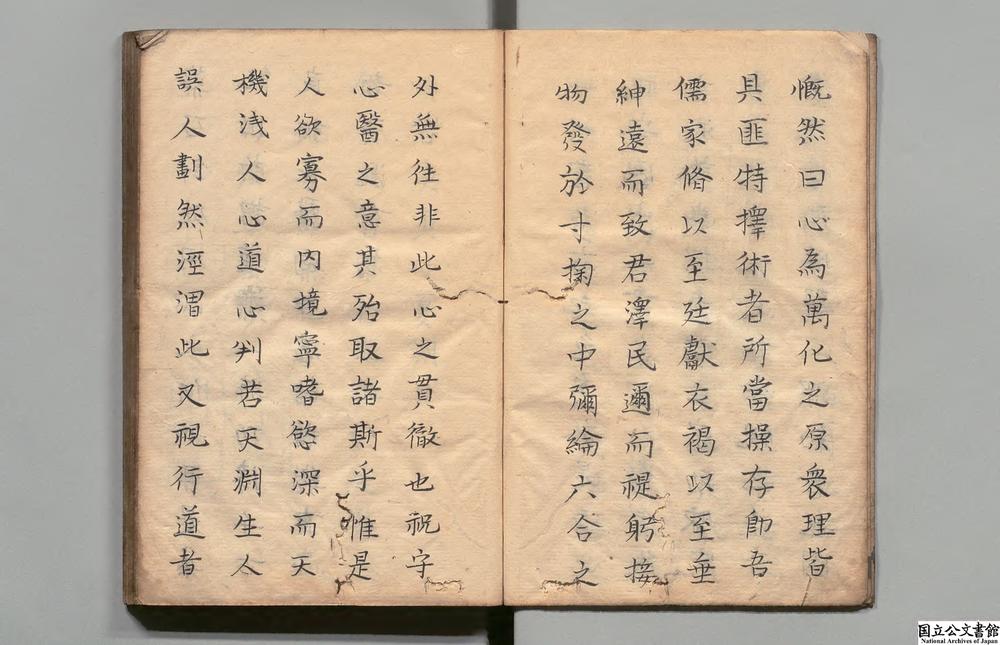 慨然曰心為萬化之原衆理皆
具匪特擇術者所當操存即吾
儒家脩以至廷獻衣褐以至垂
紳遠而致君澤民邇而禔躬接
物發於寸掬之中彌綸六合之
外無徃非此心之貫徹也祝字
心醫之意其殆取諸斯乎惟是
人欲寡而内境寧嗜慾深而天
機浅人心道心判若天淵生人
誤人劃然涇渭此又視行道者
国立公文書館
National Archives of Japan